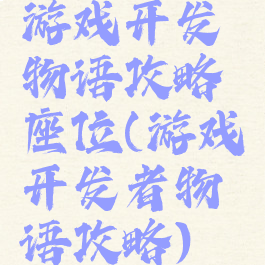 游戏开发
物语攻略
座位(游戏
开发者物
语攻略)